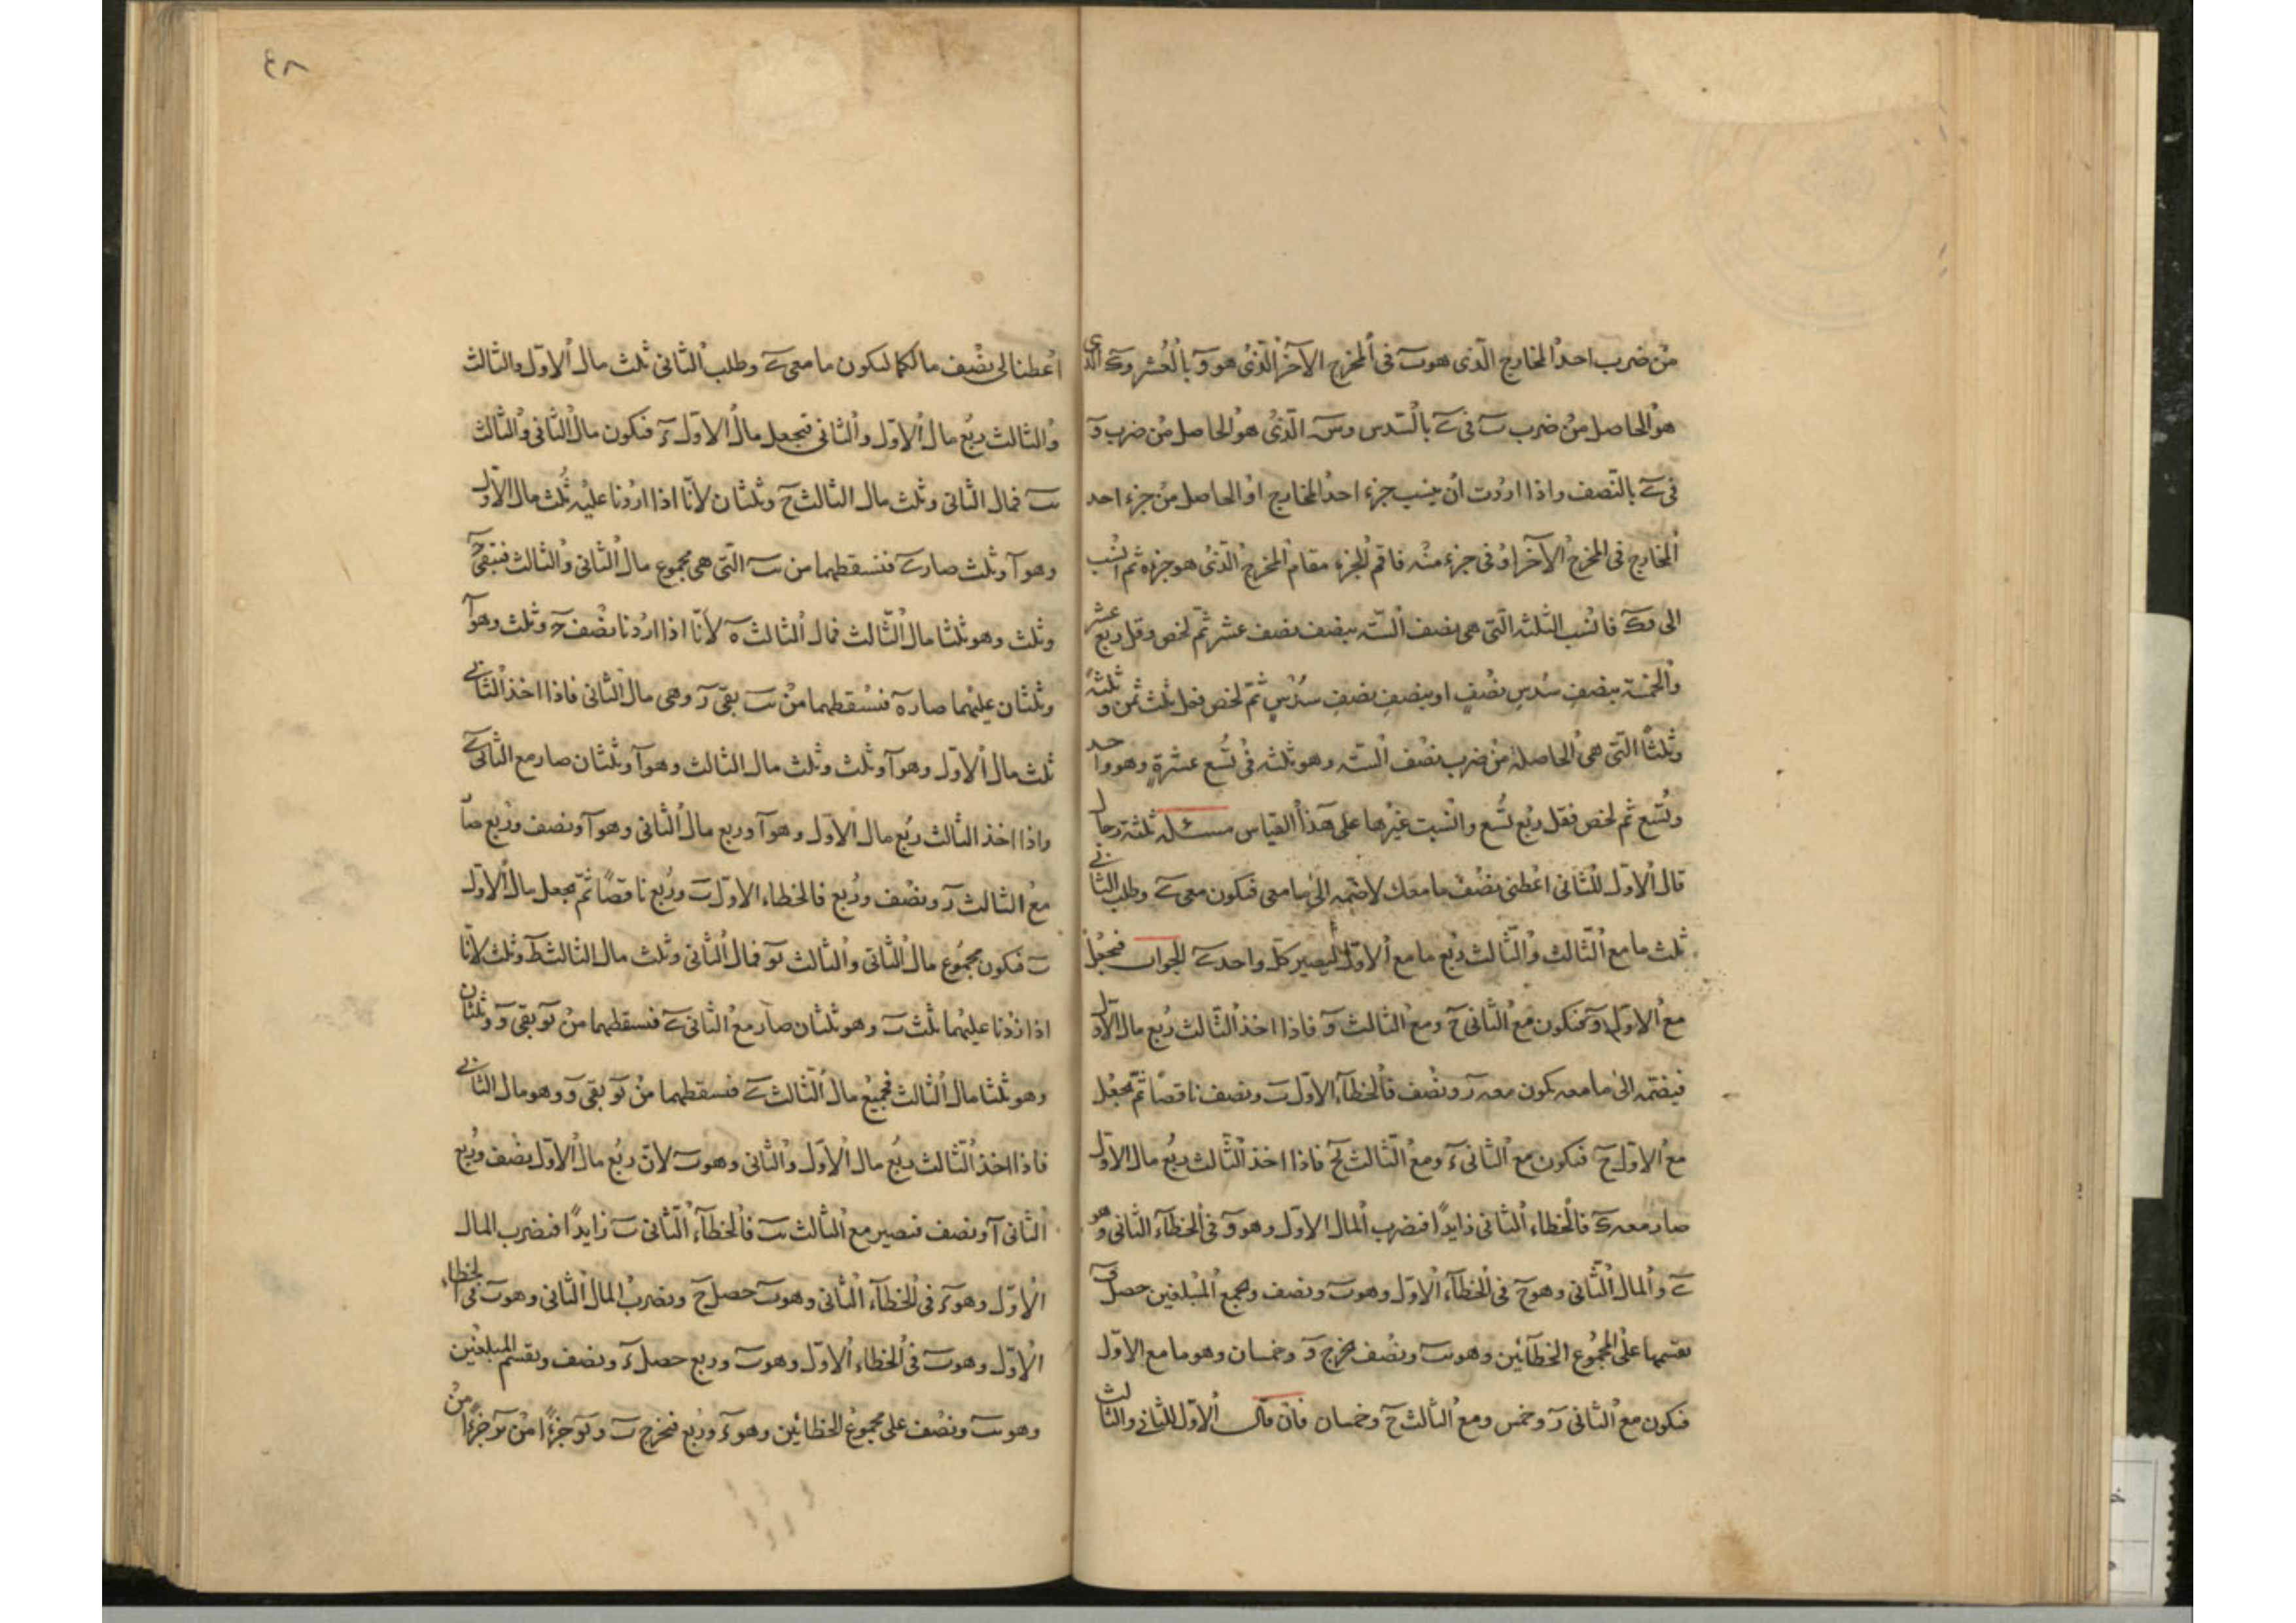 من ضرب احد المخارج الذى هو ب فى المخرج الآخر الذى هو و بالعشر و ك الذى
هو الحاصل من ضرب ب فى ى بالسدس و س الذى هو الحاصل من ضرب و
فى ى بالنصف واذا اردت ان ينسب جزء احد المخارج او الحاصل من جزء احد
المخارج فى المخرج الآخر او فى جزء منه فاقم الجزء مقام المخرج الذى هو جزءه ثم انسب
الى فانسب الثلثه التى هى نصف الستّه بنصف نصف عشر ثم لخص وقل ربع عشر
والخمسة بنصف سُدسِ نصفٍ او بنصفِ نصفِ سُدْسٍ ثمّ لخص فقل ثلث ثمن وثلثةً
وثلثاً التى هى الحاصلة من ضرب نصف الستّه وهو ثلثه فى تُسع عشرةٍ وهو واحد
وتُسَع ثم لخص فقل ربُع تُسع وانسبت غيْرها على هذا القياس مسئله ثلثة رجال
قال الاوّل للثانى اعْطنى نصْف ما معك لاضمّه الى ما معى فيكون معى ى وطلب الثانى
ثلث ما مع الثّالث والثّالث ربُع ما مع الاوّل ليصير كلّ واحد ى الجواب فنجْعل
مع الاوّل و فيكون مع الثانى ح ومع الثالث و فاذا اخذ الثّالث رُبع مال الاوّل
فيضمّه الى ما معه يكون معه ز ونصْف فالخطاء الاوّل ب ونصف ناقصًا ثمّ نجعْل
مع الاوّل ح فيكون مع الثانى د ومع الثّالث يح فاذا اخذ الثّالث ربُع مال الاوّل
صار معه ك فالخطاء الثانى زايدًا فنضرب المال الاوّل وهو و فى الخطاء الثانى وهو
ى والمال الثّانى وهو ح فى الخطاء الاوّل وهو ب ونصف ونجمع المبلغين حصل ف
نقسمها على المجموع الخطائين وهو يب ونصْف فخرج و وخمسان وهو ما مع الاوّل
فيكون مع الثانى ز وخمس ومع الثالث ح وخمسان فان قال الاوّل للثانى والثالث
٤٨
اعْطنا لى نصْف مالكما ليكون ما معى ى وطلب الثانى ثلث مال الاوّل والثالث
والثالث ربُع مال الاوّل والثانى فنجعل مال الاوّل د فيكون مال الثانى والثالث
يب فمال الثانى وثلث مال الثالث ح وثلثان لانّا اذا اردنا عليْه ثُلث مال الاوّل
وهو آ وثلث صار ى فنسقطهما من يب التى هى مجموع مال الثانى والثالث فتبقى ح
وثلث وهو ثلثا مال الثّالث فمال الثالث ه لانّا اذا اردنا نصْف ح وثلث وهو آ
وثلثان عليْهما صار ه فنسْقطهما من يب بقى ز وهى مال الثانى فاذا اخذ الثانى
ثلث مال الاوّل وهو آ وثلث وثلث مال الثالث وهو آ وثلثان صار مع الثانى ى
واذا اخذ الثالث ربُع مال الاوّل وهو آ وربع مال الثانى وهو آ ونصف ورُبع صار
مع الثالث ز ونصْف ورُبع فالخطاء الاوّل ب ورُبع ناقصًا ثمّ نجعل مال الاوّل
ب فيكون مجموع مال الثانى والثالث يو فمال الثانى وثلث مال الثالث ط وثلث لانّا
اذا زدْنا عليْهما ثلث ب وهو ثلثان صار مع الثانى ى فنسقطهما من يو بقى و وثلثان
وهو ثلثا مال الثالث فجميع مال الثّالث ى فنسقطهما من يو بقى و وهو مال الثانى
فاذا اخذ الثّالث ربُع مال الاوّل والثانى وهو ب لانّ ربُع مال الاوّل نصْف وربُع
الثانى آ ونصف فيصير مع الثالث يب فالخطاء الثّانى ب زايدًا فنضرب المال
الاوّل وهو د فى الخطاء الثانى وهو ب حصل ح ونضرب المال الثانى وهو ب فى الخطاء
الاوّل وهو ب فى الخطاء الاوّل وهو ب وربع حصل د ونصف ونقسم المبلغين
وهو يب ونصْف على مجموع الخطائين وهو د ورُبع فخرج ب و يو جزءًا من يز جزءًا من